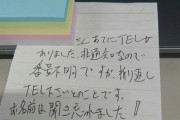 さん あてにTELが
ありました。非通知なので
番号不明ですが、折り返し
TEL下さいとのことです。
お名前は聞き忘れました!